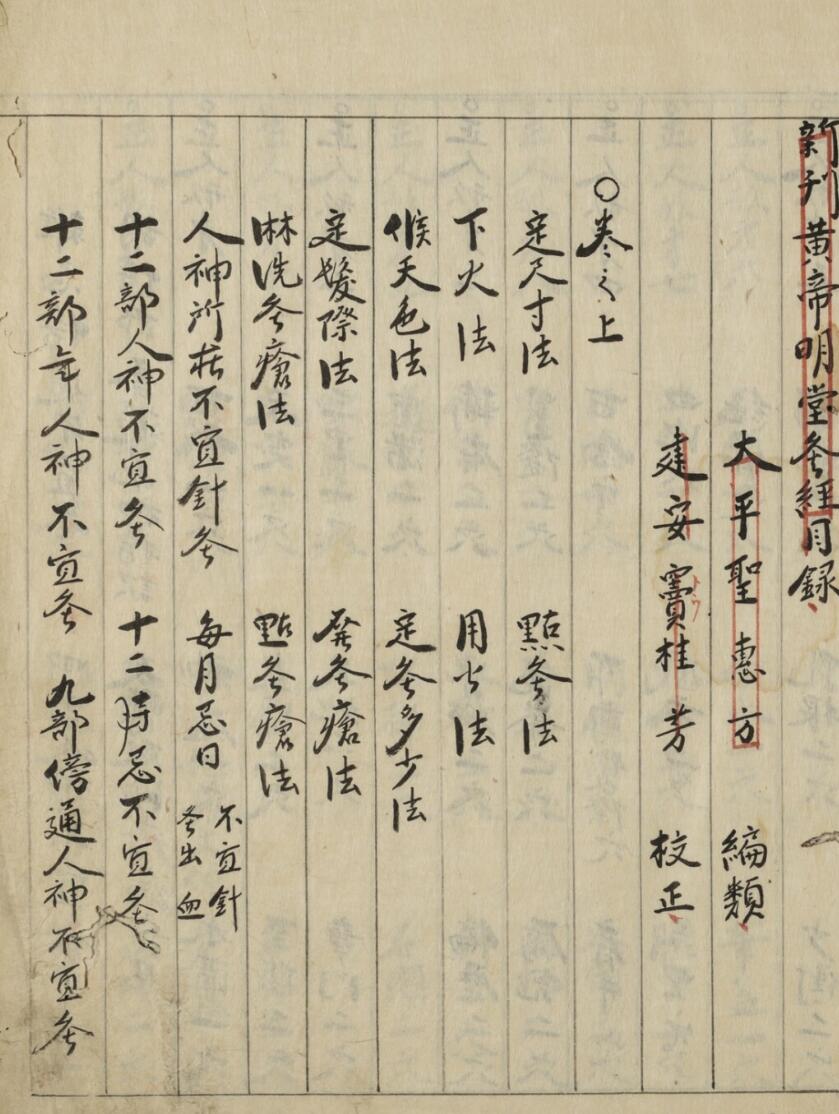 新刊黄帝明堂灸経目録
大平聖惠方 編類
建安竇桂芳 校正
○巻之上
定尺寸法 點灸法
下火法 用火法
候天色法 定灸多少法
定髮際法 発灸瘡法
淋洗灸瘡法 點灸瘡法
人神所在不宜針灸 毎月忌日 不宜針灸出血
十二部人神不宜灸 十二时忌不宜灸
十二部年人神不宜灸 九部傍通人神不宜灸